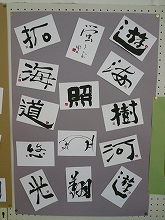 拓
蛍
遊
海
照
海
道
樹
悠
河
光
翔
遊